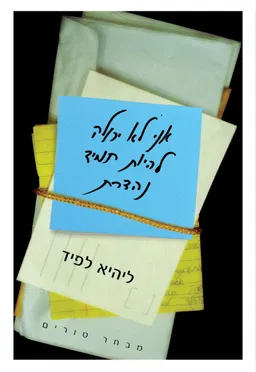 אני לא יכולה
להיות תמיד
נהדרת
ליהיא לפיד
מבחר טורים